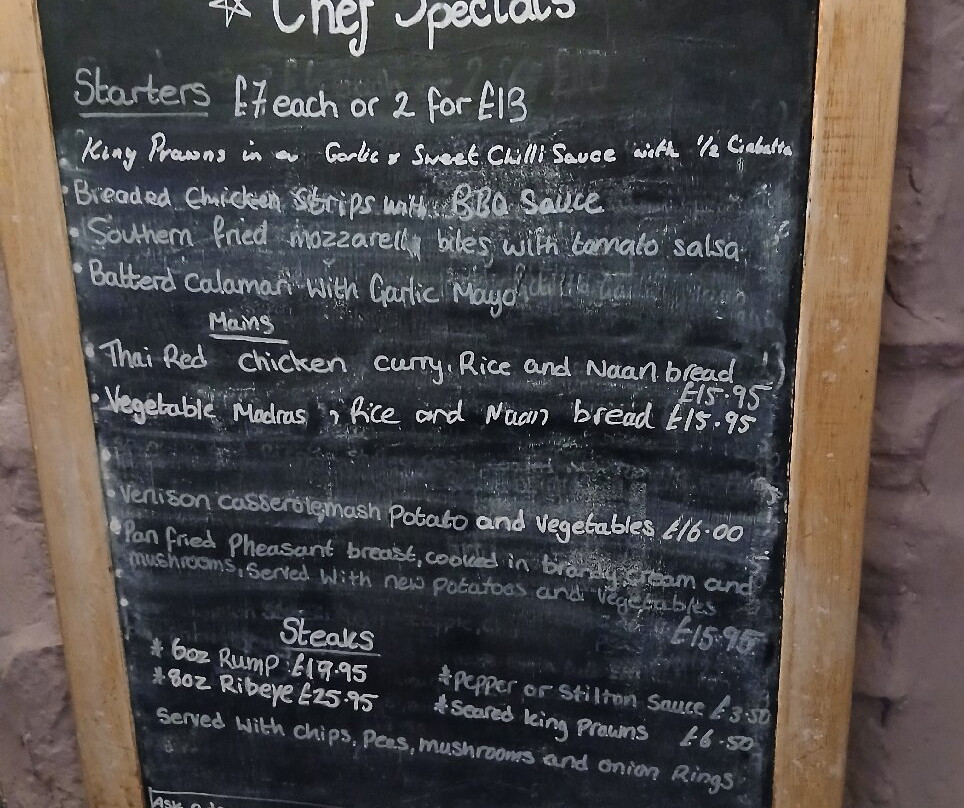 ☆ Chef Specials
Starters £7 each or 2 for £13
King Prawns in a Garlic & Sweet Chilli Sauce with 1/2 Ciabatta
• Breaded Chicken Strips with BBQ Sauce
• Southern fried mozzarella bites with tomato salsa
• Batterd Calamari With Garlic Mayo
Mains
• Thai Red chicken curry, Rice and Naan bread
£15.95
• Vegetable Madras, Rice and Naan bread £15.95
• Venison casserole, mash Potato and vegetables £16.00
• Pan fried Pheasant breast, cooked in brandy cream and
mushrooms, Served With new potatoes and vegetables
£15.95
Steaks
* 6oz Rump £19.95
* 8oz Ribeye £25.95
* Pepper or Stilton Sauce £3.50
* Seared King Prawns £6.50
Served With chips, Peas, mushrooms and onion Rings
Ask a